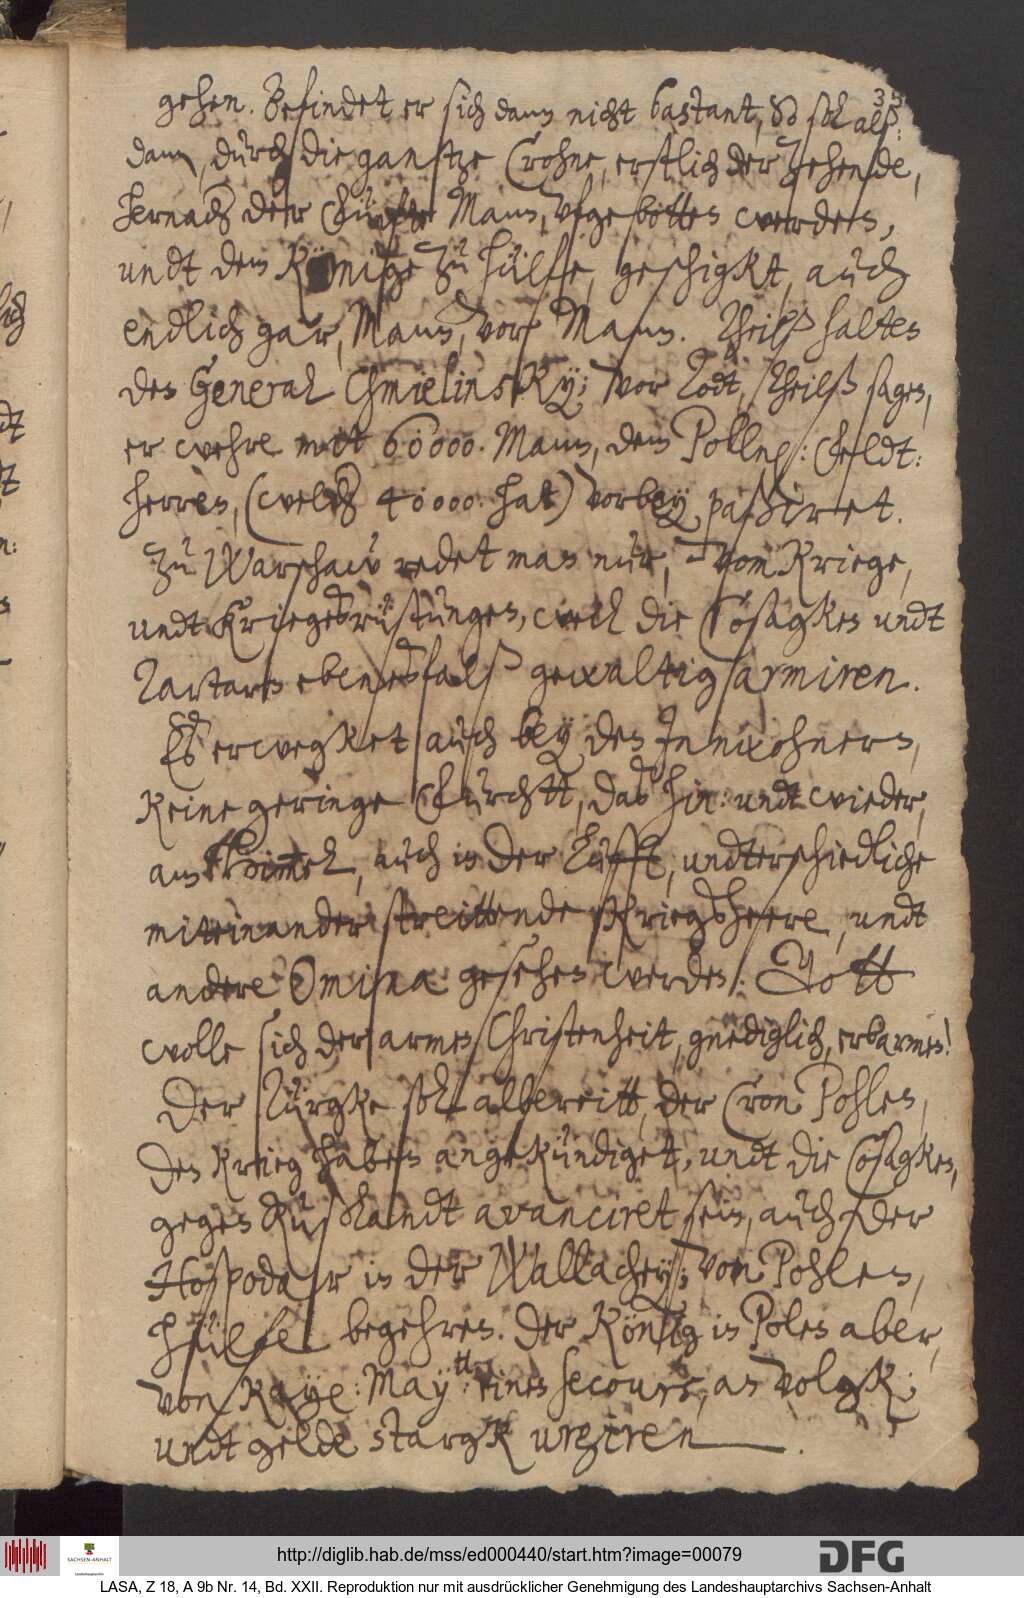 35
gehen. Befindet er sich dann nicht bastant, So sol alß:
dann, durch die gantze Crohne, erstlich der Zehende,
hernach der Fünfte Mann, ufgebotten werden,
undt dem Könige zu hülffe, geschigkt, auch
endlich gar, Mann, vor Mann. Theilß halten
den General Chmielinsky; vor Todt, theilß sagen,
er wehre mitt 60000. Mann, dem Polln: Feldt:
herren, (welch 40000. hat) vorbey paßiret.
Zu Warschaw redet man nur, vom Kriege,
undt Kriegesrüstungen, weil die Cosagken undt
Tartarn ebenesfalß gewaltig armiren.
Es erwegket auch bey den Innwohnern,
keine geringe Furchtt, das hin: undt wieder,
am Himmel, auch in der Lufft, undterschiedliche
miteinander streittende Kriegsheere, undt
andere Omina gesehen werden: Gott
wolle sich der armen Christenheit, gnediglich, erbarmen!
Der Türgke sol albereitt, der Cron Pohlen,
den Krieg haben angekündiget, undt die Cosagken,
gegen Rußlandt avanciret sein, auch der
Hospodar in der Wallachey; von Pohlen,
hülfe begehren. Der König in Polen aber,
von Kaye: Maytt: einen secours, an volgk;
undt gelde stargk urgiren.
http://diglib.hab.de/mss/ed000440/start.htm?image=00079
SACHSEN-ANHALT
DFG
LASA, Z 18, A 9b Nr. 14, Bd. XXII. Reproduktion nur mit ausdrücklicher Genehmigung des Landeshauptarchivs Sachsen-Anhalt